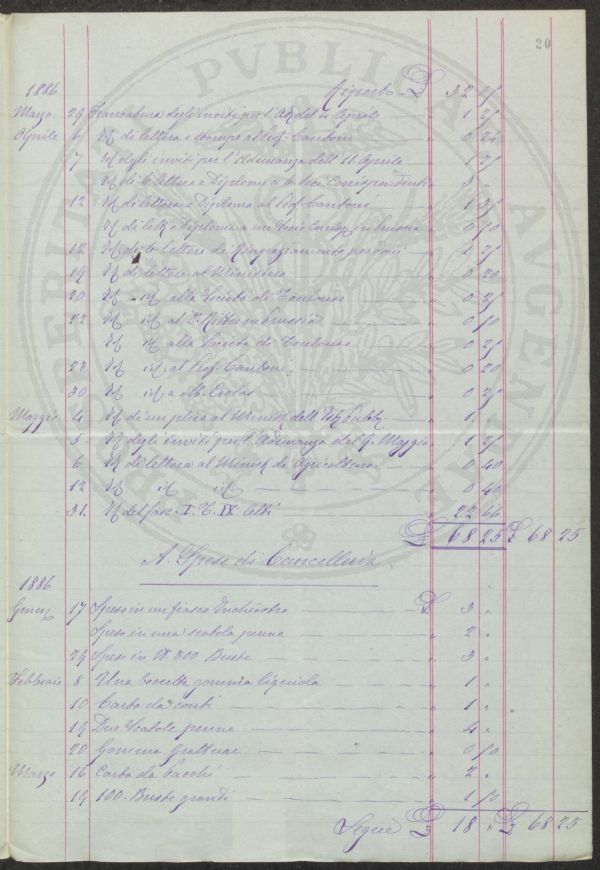 20
PVBLICAE AVGENDAE
1886 Riporto £ 32 05
Marzo 29 Francatura degli inviti per l'Ad. del 4 Aprile " 1 25
Aprile 6 Id di lettera e stampe al Prof. Cantoni " 0 24
7 Id degli inviti per l'Adunanza dell'11 Aprile " 1 25
Id di 6 lettere e Diplomi a 6 Soci Corrispondenti " 3 "
12 Id di lettera e Diploma al Prof Cantoni " 1
Id di lett e Diploma a un Socio Corrisp in Prussia " 0 50
12 Id di 6 lettere di Ringraziamento " 1
19 Id di lettera al Ministero " 0 20
20 Id id alla Società di Toulouse " 0 25
22 Id id al D. in Prussia " 0 50
Id id alla Società di Toulouse " 0 25
28 Id id al Prof. Cantoni " 0 20
30 Id id a M. " 0 25
Maggio 4 Id di un plico al Minist dell'Ist Pubb " 1 "
5 Id degli inviti per l'Adunanza del 9 Maggio " 1 25
6 Id di lettera al Minist di Agricoltura " 0 40
12 Id id id " 0 40
31 Id del fasc. I. T. IX. Atti " 22 66
£ 68 25 £ 68 25
A. Spese di Cancelleria
1886
Genn 17 Speso in un fiasco Inchiostro £ 3 "
Speso in una scatola penne " 2 "
29 Speso in N. 300 Buste " 3 "
Febbraio 8 Una boccetta gomma liquida " 1 "
10 Carta da conti " 1 "
19 Due Scatole penne " 4 "
20 Gomma " 0 50
Marzo 16 Carta da Pacchi " 2 "
19 100 Buste grandi " 1 50
Segue £ 18 " £ 68 25